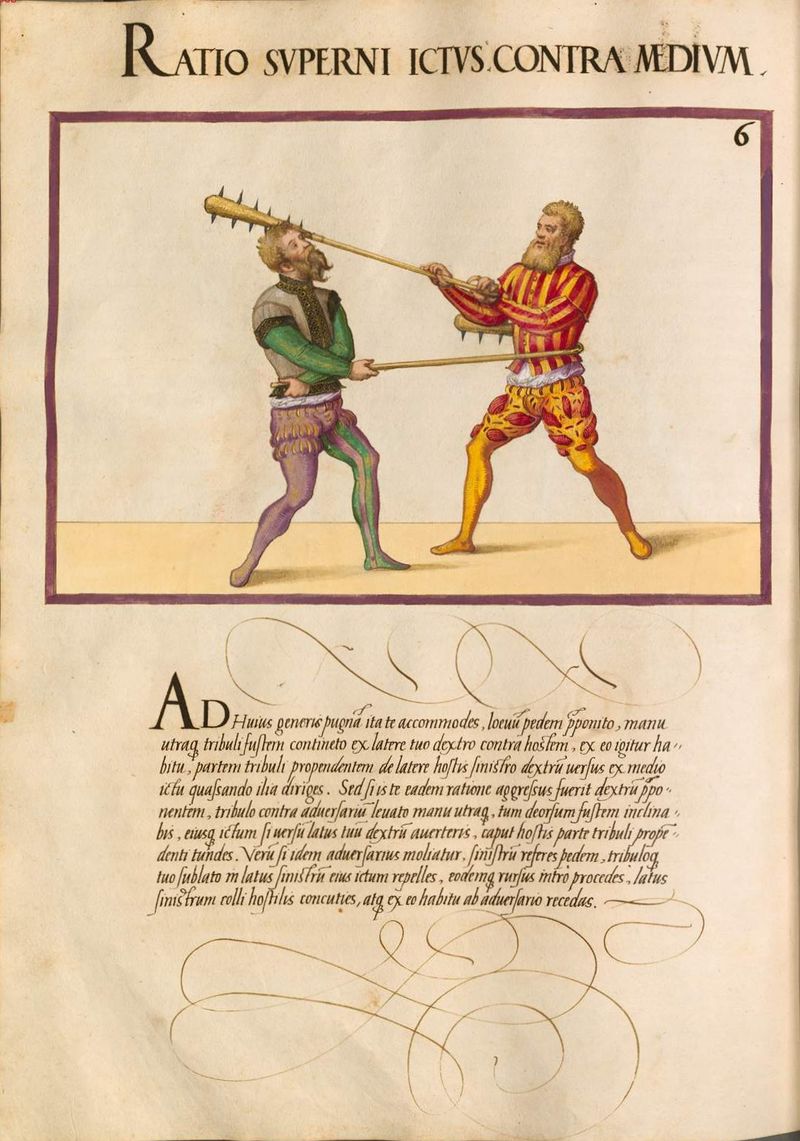 RATIO SVPERNI ICTVS CONTRA MEDIVM.
6
AD Huius generis pugnã ita te accommodes, loeuũ pedem p̃ponito, manu
utraq tribuli fustem contineto ex latere tuo dextro contra hostem, ex eo igitur ha-
bitu, partem tribuli propendentem de latere hostis sinistro dextrũ uersus ex medio
ictu quassando ilia diriges. Sed si is te eadem ratione aggressus fuerit dextrũ p̃po-
nentem, tribulo contra aduersariũ leuato manu utraq, tum deorsum fustem inclina-
bis, eiusq ictum si uersũ latus tuũ dextrũ auerteris, caput hostis parte tribuli prope-
denti tundes. Verũ si idem aduersarius moliatur, sinistrũ referes pedem, tribuloq
tuo sublato in latus sinistrũ eius ictum repelles, eodemq rursus intrò procedes, latus
sinistrum colli hostilis concuties, atq ex eo habitu ab aduersario recedas.